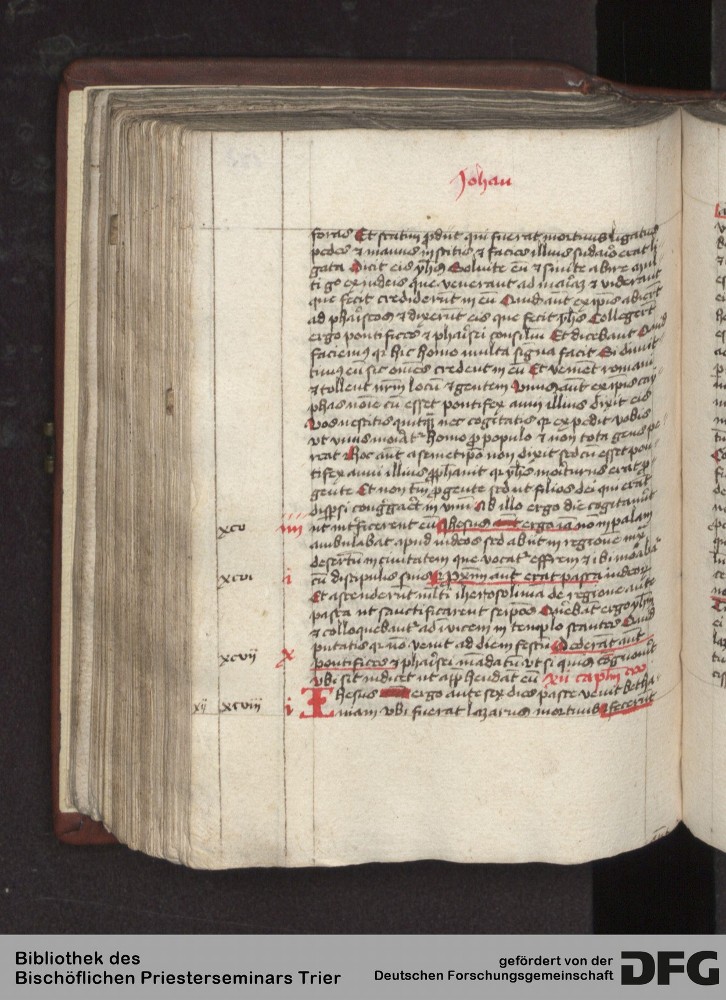 Johan
foras Et statim prodiit qui fuerat mortuus ligatus
pedes et manus institis et facies illius sudario erat li
gata Dicit eis yhesus Soluite eum et sinite abire mul
ti go ex iudeis que venerant ad mariam et viderant
que fecit crediderunt in eum Quidam aut ex ipis abierunt
ad phariseos et dixerunt eis que fecit yhesus Collegerunt
ergo pontifices et pharisei consilium Et dicebant Quid
facimus qr hic homo multa signa facit Si dimit
timus eum sic omnes credent in eum Et venient romani
et tollent nostrum locum et gentem Unus aut ex ipis cay
phas noie cum esset pontifex anni illius dixit eis
vos nescitis quitquam nec cogitatis qr expedit vobis
vt vnus moriatur homo pro populo et non tota gens pe
reat Hoc aut a semetipso non dixit sed cum esset pon
tifex anni illius prophetauit qr yhesus moriturus erat pro
gente Et non tantum pro gente sed ut filios dei qui erant
dispersi congregaret in vnum Ab illo ergo die cogitauerunt
xcv iiii ut interficerent eum Jhesus ergo iam non in palam
ambulabat apud iudeos sed abiit in regione iuxta
desertum in ciuitatem que vocatur effrem et ibi morabatur
xcvi i cum discipulis suis Proximum aut erat pasca iudeorum
Et ascenderunt multi iherosolima de regione ante
pasca ut sanctificarent seipsos Querebant ergo yhesum
et colloquebantur ad inuicem in templo stantes Quid
putatis qr non venit ad diem festum Dederant aut
xcvii x pontifices et pharisei mandatum vt si quis cognouerit
vbi sit indicet ut apprehendant eum xii caplm
xii xcviii i Ihesus ergo ante sex dies pasce venit betha
niam vbi fuerat lazarus mortuus Fecerunt
Bibliothek des
Bischöflichen Priesterseminars Trier
gefördert von der
Deutschen Forschungsgemeinschaft
DFG